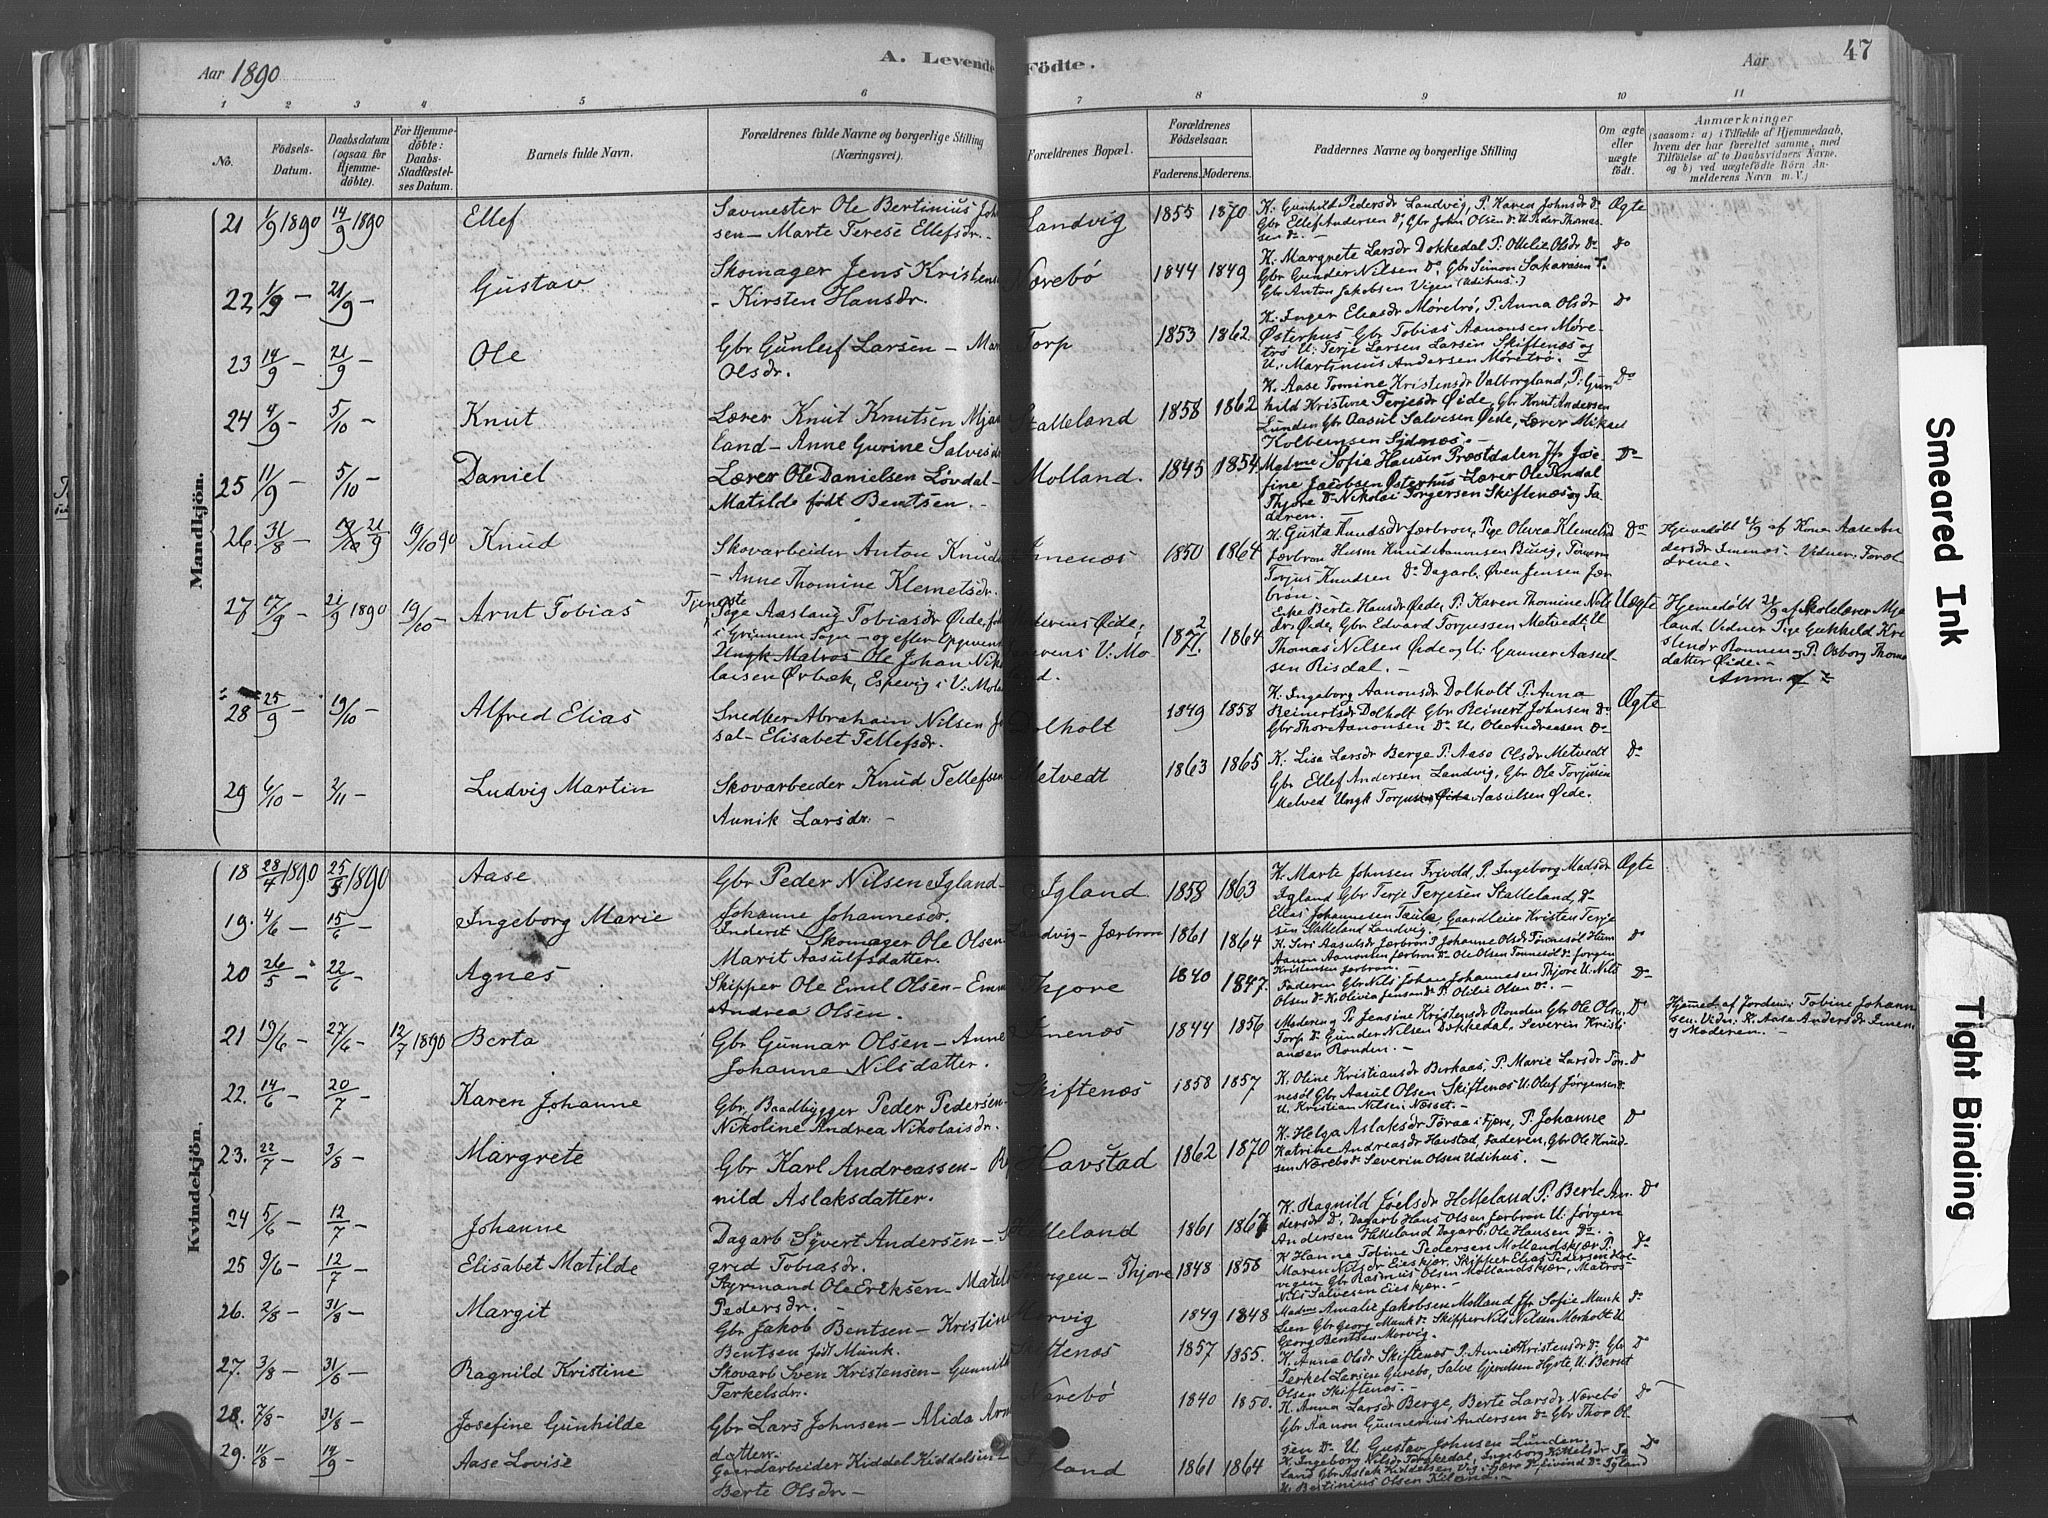 Aar 1890
A. Levende Födte.
Aar
47
1 2 3 4 5 6 7 8 9 10 11
No.
Födsels-Datum.
Daabsdatum (ogsaa for Hjemme-döbte).
For Hjemme-döbte: Daabs-Stadfæstel-ses Datum.
Barnets fulde Navn.
Forældrenes fulde Navne og borgerlige Stilling (Næringsvei).
Forældrenes Bopæl.
Forældrenes Födselsaar.
Faderens. Moderens.
Faddernes Navne og borgerlige Stilling
Om ægte eller uægte födt.
Anmærkninger
(saasom: a) i Tilfælde af Hjemmedaab,
hvem der har forrettet samme, med
Tilföielse af to Daabsvidners Navne,
og b) ved uægtefödte Börn An-
melderens Navn m. V.)
Mandkjön.
21 1/9 1890 14/9 1890 Ellef
Savmester Ole Bertinius Joh
sen – Marte Terese Ellefsdr. –
Landvig 1855 1870
K. Gunhild Pedersdr Landvig, P. Karen Johnsdr Do
Gbr Ellef Andersen Do, Gbr John Olsen Do U. Peder Thomas-
sen Do –
Ægte
22 1/9 – 21/9 – Gustav
Skomager Jens Kristens
– Kirsten Hansdr.
Nærebö 1844 1849
K. Margrete Larsdr Dokkedal P. Ottilie Olsdr Do
Gbr Gunder Nilsen Do Gbr Simon Sakarasen
Gbr Anton Jakobsen Vigen (Udihus.)
Do
23 14/9 – 21/9 – Ole
Gbr Gunleif Larsen – Mar
Olsdr.
Torp 1853 1862
K. Inger Eliasdr Møretrø, P. Anna Olsdr
Østerhus Gbr Tobias Aanonsen Møre-
trø U. Terje Larsen Larsen Skiftenæs og
U. Martinius Andersen Møretrø. –
Do
24 4/9 – 5/10 – Knut
Lærer Knut Knutsen Mja
land – Anne Gurine Salvesdr
Stalleland 1858 1862
K. Aase Tomine Kristensdr Valborgland, P. Gun
hild Kristina Terjesdr Øide, Gbr Knut Andersen
Lunden Gbr Aasul Salvesen Øide, Lærer Mikael
Kolbeinsen Sydnæs. –
Do
25 11/9 5/10 – Daniel
Lærer Ole Danielsen Løvdal –
Matilde født Bentsen. –
Molland. 1845 1854.
Madme Sofie Hansen Præstdalen Jfr Jose-
fine Jacobsen Østerhus – Lærer Ole Omdal
Thjore Do Nikolai Torgersen Skiftenæs og Fa
deren. –
Do
26. 31/8 – 19/10 21/9 19/10 90 Knud
Skovarbeider Anton Knuds
– Anne Thomine Klemetsdr.
Imenæs 1850 1864
K. Gusta Knudsdr Jærbron, Pige Olivia Klemetsd
Jærbron Husm Knud Aanonsen Buvig, Tømerm
Torjus Knudsen Do Dagarb. Øven Jensen Jær-
bron.
Do
Hjemedøbt 21/9 af Kone Aase An
dersdr Imenæs. Vidner: Foræl-
drene.
27 17/9 – 21/9 1890 19/10 – Arnt Tobias
Tjeneste
Pige Aaslaug Tobiasdr Øide,
i Grimnem Sogn – og efter Opgivende
Ungk Matros Ole Johan Niko
laisen Ørbæk, Espevig i V: Mola
Moderens Øide,
Faderens V: Mo-
land. 1872 1864
Enke Berte Hansdr Øide, P. Karen Thomine Nils
dr Øide, Gbr Edvard Torjussen Metvedt, U
Thomas Nilsen Øide og U. Gunner Aasul-
sen Risdal. –
Uægte
Hjemedøbt 21/9 af Skolelærer Mja
land. Vidner Pige Gunhild Kri
stensdr Ronnen og P. Osborg Thoma
datter Øide. –
28 25/9 – 19/10 – Alfred Elias
Snedker Abraham Nilsen J
sal – Elisabet Tellefsdr. –
Dolholt 1849 1858
K. Ingeborg Aanonsdr Dolholt P. Anna
Reinertsdr Dolholt Gbr Reinert Johnsen Do
Gbr Thore Aanonsen Do U. Ole Andreasen Do –
Ægte
29 4/10 – 2/11 – Ludvig Martin
Skovarbeider Knud Tellefsen
Annik Larsdr: –
Metvedt 1863 1865
K. Lisa Larsdr Berge P. Aase Olsdr Metvedt
Gbr Ellef Andersen Landvig, Gbr Ole Torjusen
Metved Ungk Torjus Øide Aasulsen Øide.
Do
Kvindekjön.
18 28/4 1890 25/5 1890 Aase
Gbr Peder Nilsen Igland –
Johanne Johannesdr.
Igland 1858 1863
K. Marte Johnsen Frivold, P. Ingeborg Madsdr
Igland Gbr Terje Terjesen Stalleland, Do
Elias Johannesen Taule, Gaardleier Kristen Terje
sen Stalleland Landvig.
Ægte
19. 4/6 – 15/6 – Ingeborg Marie
Underst Skomager Ole Olsen –
Marit Aasulfsdatter.
Landvig – Jærbron 1861 1864
K. Seri Aasulsdr Jærbron P. Johanne Olsdr Tønnesøl Husm
Aanon Aanonsen Jærbron Do Ole Olsen Tønnesøl Do Jørgen
Kristensen Jærbron. –
Do
20 26/5 – 22/6 – Agnes
Skipper Ole Emil Olsen – Emm
Andrea Olsen.
Thjore 1840 1847.
Faderen Gbr Nils Johan Johannesen Thjore U. Nils
Olsen Do K. Olivia Jensen Do P. Otilie Olsen Do –
Do
21 19/6 – 27/6 – 12/7 1890 Berta
Gbr Gunnar Olsen – Anne
Johanne Nilsdatter.
Imenæs 1844 1856
Moderen og P. Jensine Kristensdr Ronden Gbr Ole Olsen,
Torp Do Gunder Nilsen Dokkedal, Severin Kristi
ansen Ronden. –
Do
Hjemmed. af Jordemo. Tobine Johann
sen. Vidn. K. Aase Andersdr Imen
og Moderen. –
22. 14/6 – 20/7 – Karen Johanne
Gbr. Baadbygger Peder Pedersen –
Nikoline Andrea Nikolaisdr.
Skiftenæs 1858 1857
K. Oline Kristiansdr Birkaas, P. Marie Larsdr Tøn-
nesøl Gbr Aasul Olsen Skiftenæs U. Olaf Jørgensen Do
U. Kristian Nilsen Næsset. –
Do
23. 22/7 – 3/8 – Margrete
Gbr Karl Andreassen – R
nild Aslaksdatter.
Havstad 1862 1870
K. Helga Aslaksdr Töraa i Fjære, P. Johanne
Katrine Andreasdr Havstad, Faderen, Gbr Ole Knud-
sen Nærebø Do Severin Olsen Udihus. –
Do
24 5/6 – 12/7 – Johanne
Dagarb Syvert Andersen –
grid Tobiasdr.
Helleland 1861 1867
K. Ragnild Joelsdr Helleland P. Berte An-
dersdr Do, Dagarb Hans Olsen Jærbron U. Jørgen
Andersen Helleland Dagarb. Ole Hansen Do. –
Do
25 9/6 – 12/7 – Elisabet Matilde
Styrmand Ole Eriksen – Matil
Pedersdr. –
Thjore 1848 1856
K Hanne Tobine Pedersen Mollandskjær P.
Maren Nilsdr Eieskjær, Skipper Elias Pedersen Hore-
vigen Gbr Rasmus Olsen Mollandskjær, Matros
Nils Salvesen Eieskjær. –
Do
26. 2/8 – 31/8 – Margit
Gbr Jakob Bentsen – Kristine
Bentsen født Munk.
Morvig 1849 1848
Madme Amalie Jakobsen Molland Jfr Sofie Munk
Lien Gbr Georg Munk Do Skipper Nils Nilsen Morholt U
Georg Bentsen Morvig.
Do
27. 3/8 – 31/8 – Ragnild Kristine
Skovarb Sven Kristensen – Gunnild
Terkelsdr.
Skiftenæs 1857 1855.
K. Anna Olsdr Skiftenæs P. Anne Kristensdr Do Gbr
Terkel Larsen Gurebo, Salve Gjerulsen Hjorte U. Bernt
Olsen Skiftenæs. –
Do
28. 7/8 – 31/8 – Josefine Gunhilde
Gbr Lars Johnsen – Alida Arn
datter.
Nærebö 1840 1850.
K. Anna Larsdr Berge, Berte Larsdr Nærebö
Gbr Aanon Gunnerius Andersen Do Gbr Thor Ol-
sen Do U. Gustav Johnsen Lunden.
Do
29. 11/8 14/9 – Aase Lovise
Gaardarbeider Kiddel Kiddelsen –
Berte Olsdr –
Igland 1861 1864
K. Ingeborg Nilsdr Torskedal, Ingeborg Kittelsdr Ig
land Gbr Aslak Kiddelsen Vig i Fjære K. Eivind Do Igland
U. Bertinius Olsen Kiland. –
Do
Smeared Ink
Tight Binding